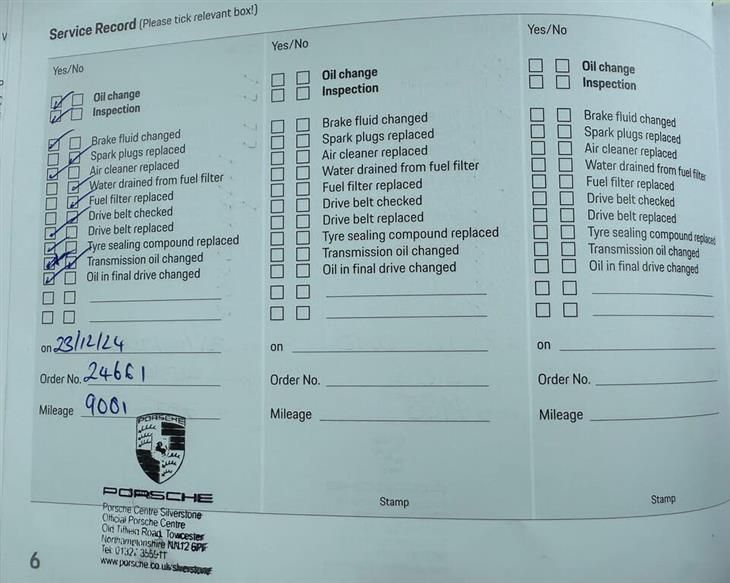 Service Record (Please tick relevant box!)
Yes/No
Oil change
Inspection
Brake fluid changed
Spark plugs replaced
Air cleaner replaced
Water drained from fuel filter
Fuel filter replaced
Drive belt checked
Drive belt replaced
Tyre sealing compound replaced
Transmission oil changed
Oil in final drive changed
on 23/12/24
Order No. 24661
Mileage 9001
PORSCHE
PORSCHE
Porsche Centre Silverstone
Official Porsche Centre
Old Tiffield Road, Towcester
Northamptonshire NN12 6PF
Tel: 01327
www.porsche.co.uk/silverstone
Yes/No
Oil change
Inspection
Brake fluid changed
Spark plugs replaced
Air cleaner replaced
Water drained from fuel filter
Fuel filter replaced
Drive belt checked
Drive belt replaced
Tyre sealing compound replaced
Transmission oil changed
Oil in final drive changed
on
Order No.
Mileage
Stamp
Yes/No
Oil change
Inspection
Brake fluid changed
Spark plugs replaced
Air cleaner replaced
Water drained from fuel filter
Fuel filter replaced
Drive belt checked
Drive belt replaced
Tyre sealing compound replaced
Transmission oil changed
Oil in final drive changed
on
Order No.
Mileage
Stamp
6